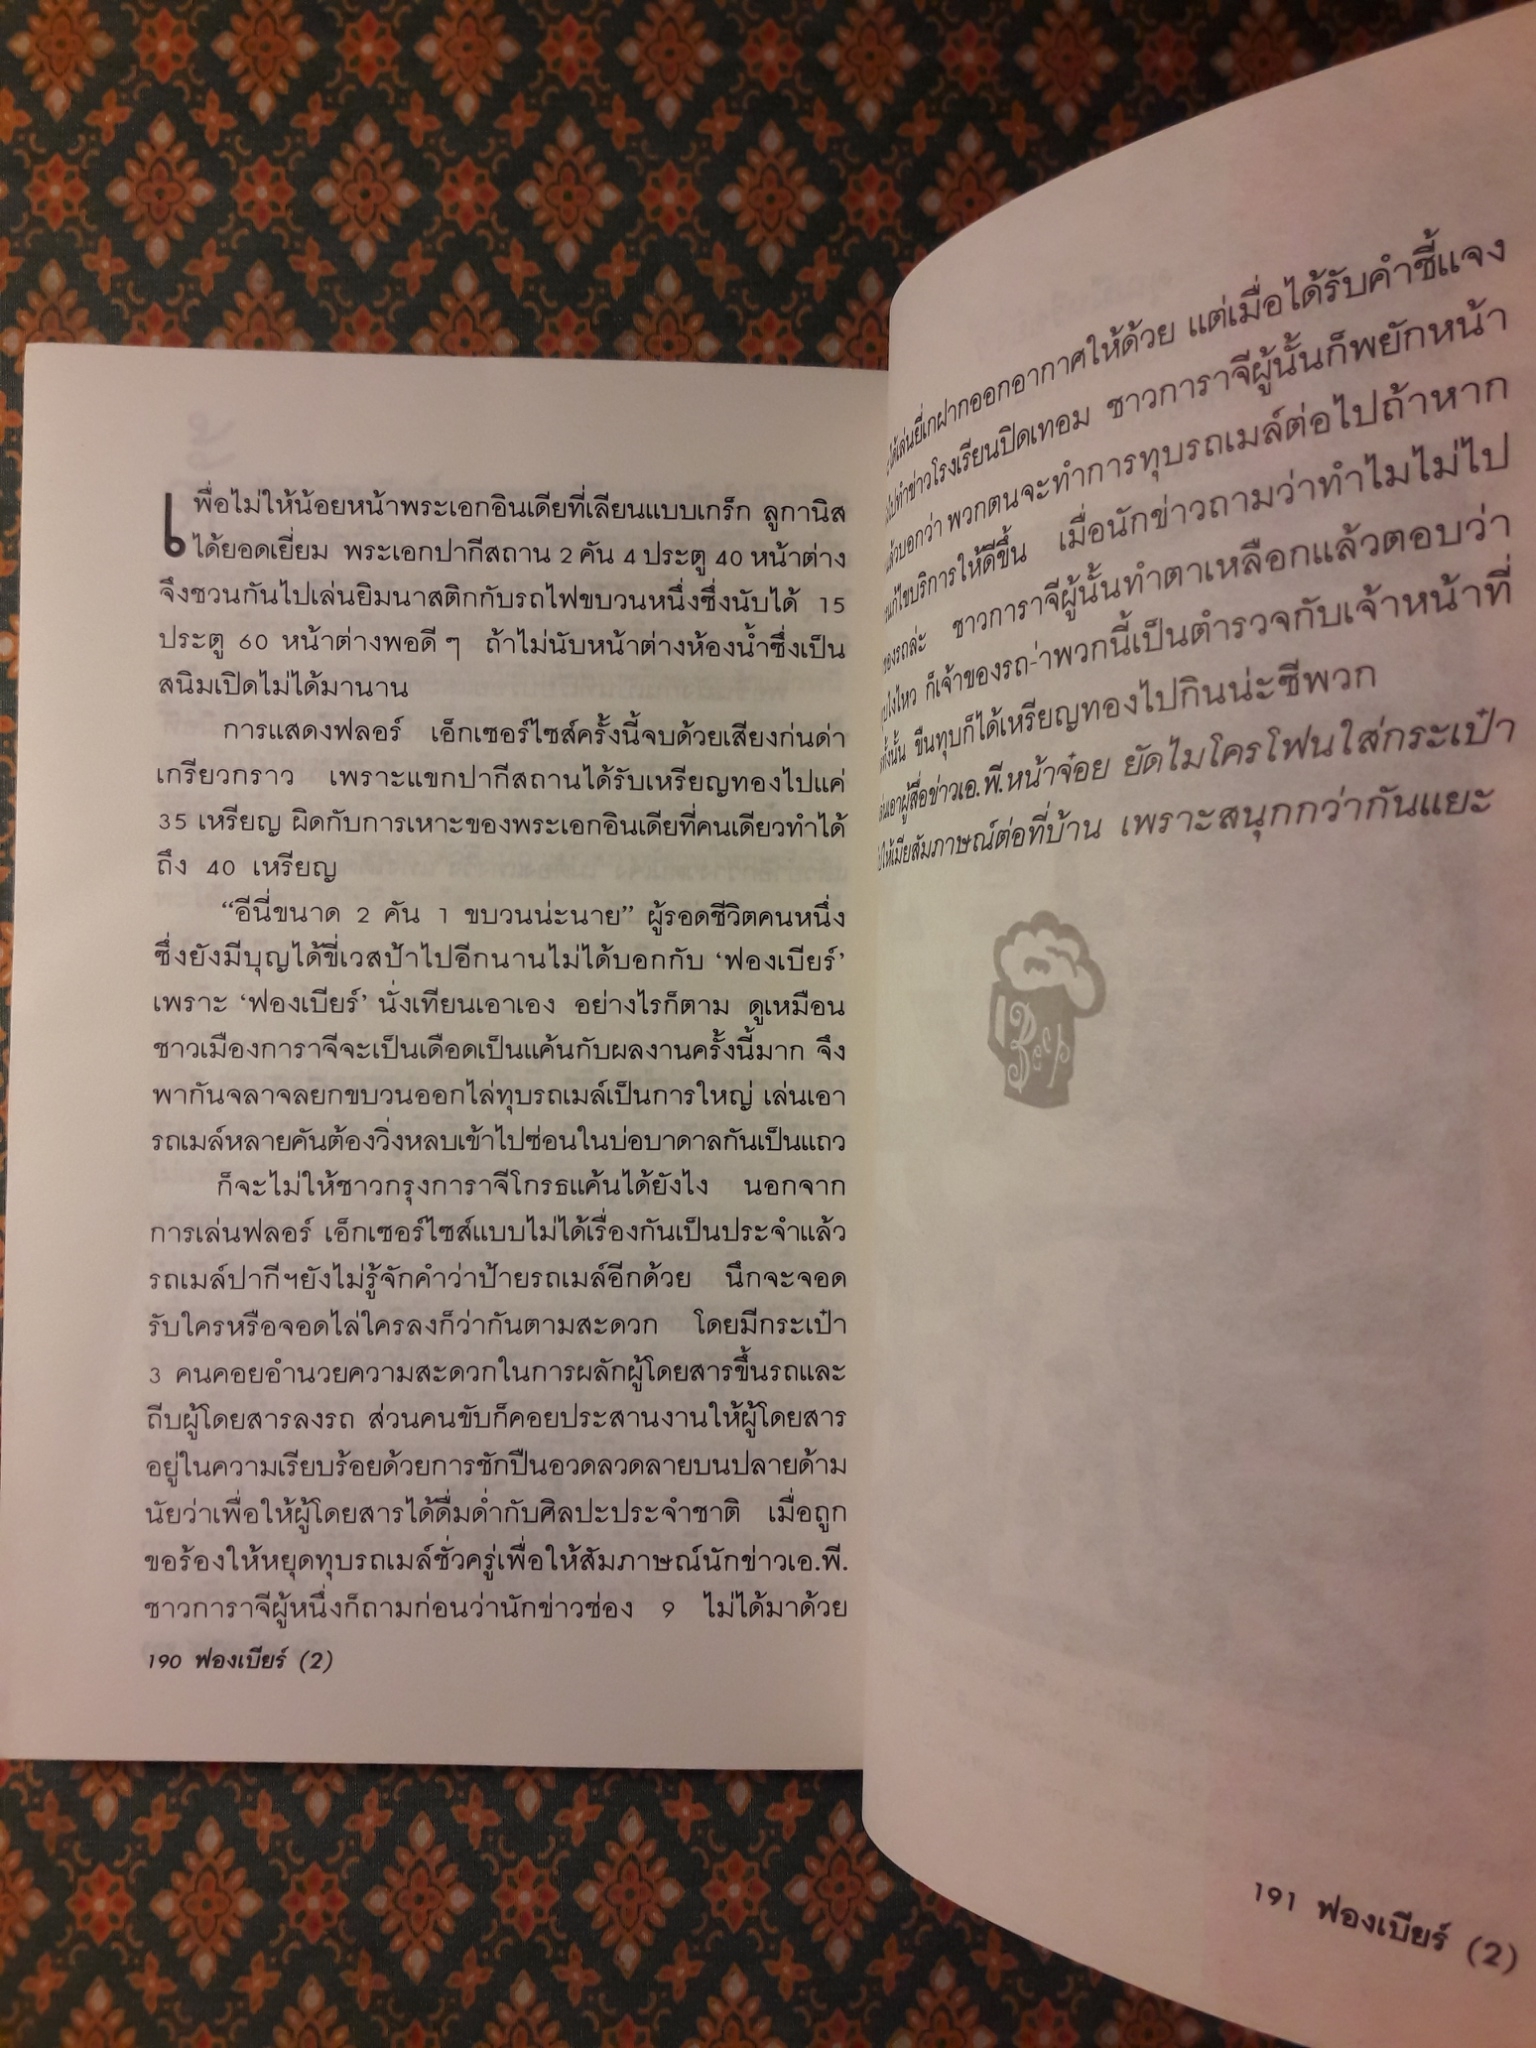 เพื่อไม่ให้น้อยหน้าพระเอกอินเดียที่เลียนแบบเกร็ก ลูกานิส
ได้ยอดเยี่ยม พระเอกปากีสถาน 2 คัน 4 ประตู 40 หน้าต่าง
จึงชวนกันไปเล่นยิมนาสติกกับรถไฟขบวนหนึ่งซึ่งนับได้ 15
ประตู 60 หน้าต่างพอดีๆ ถ้าไม่นับหน้าต่างห้องน้ำซึ่งเป็น
สนิมเปิดไม่ได้มานาน
การแสดงฟลอร์ เอ็กเซอร์ไซส์ครั้งนี้จบด้วยเสียงก่นด่า
เกรียวกราว เพราะแขกปากีสถานได้รับเหรียญทองไปแค่
35 เหรียญ ผิดกับการเหาะของพระเอกอินเดียที่คนเดียวทำได้
ถึง 40 เหรียญ
“อีนี่ขนาด 2 คัน 1 ขบวนน่ะนาย” ผู้รอดชีวิตคนหนึ่ง
ซึ่งยังมีบุญได้ขี่เวสป้าไปอีกนานไม่ได้บอกกับ ‘ฟองเบียร์’
เพราะ ‘ฟองเบียร์’ นั่งเทียนเอาเอง อย่างไรก็ตาม ดูเหมือน
ชาวเมืองการาจีจะเป็นเดือดเป็นแค้นกับผลงานครั้งนี้มาก จึง
พากันจลาจลยกขบวนออกไล่ทุบรถเมล์เป็นการใหญ่ เล่นเอา
รถเมล์หลายคันต้องวิ่งหลบเข้าไปซ่อนในบ่อบาดาลกันเป็นแถว
ก็จะไม่ให้ชาวกรุงการาจีโกรธแค้นได้ยังไง นอกจาก
การเล่นฟลอร์ เอ็กเซอร์ไซส์แบบไม่ได้เรื่องกันเป็นประจำแล้ว
รถเมล์ปากีฯยังไม่รู้จักคำว่าป้ายรถเมล์อีกด้วย นึกจะจอด
รับใครหรือจอดไล่ใครลงก็ว่ากันตามสะดวก โดยมีกระเป๋า
3 คนคอยอำนวยความสะดวกในการผลักผู้โดยสารขึ้นรถและ
ถีบผู้โดยสารลงรถ ส่วนคนขับก็คอยประสานงานให้ผู้โดยสาร
อยู่ในความเรียบร้อยด้วยการชักปืนอวดลวดลายบนปลายด้าม
นัยว่าเพื่อให้ผู้โดยสารได้ดื่มด่ำกับศิลปะประจำชาติ เมื่อถูก
ขอร้องให้หยุดทุบรถเมล์ชั่วครู่เพื่อให้สัมภาษณ์นักข่าวเอ.พี.
ชาวการาจีผู้หนึ่งก็ถามก่อนว่านักข่าวช่อง 9 ไม่ได้มาด้วย
190 ฟองเบียร์ (2)
ได้เล่นยี่เกฝากออกอากาศให้ด้วย แต่เมื่อได้รับคำชี้แจง
ไปทำข่าวโรงเรียนปิดเทอม ชาวการาจีผู้นั้นก็พยักหน้า
แล้วบอกว่า พวกตนจะทำการทุบรถเมล์ต่อไปถ้าหาก
แก้ไขบริการให้ดีขึ้น เมื่อนักข่าวถามว่าทำไมไม่ไป
ของรถล่ะ ชาวการาจีผู้นั้นทำตาเหลือกแล้วตอบว่า
ไงไหว ก็เจ้าของรถ-่าพวกนี้เป็นตำรวจกับเจ้าหน้าที่
ทั้งนั้น ขืนทุบก็ได้เหรียญทองไปกินน่ะซีพวก
เล่นเอาผู้สื่อข่าวเอ.พี.หน้าจ๋อย ยัดไมโครโฟนใส่กระเป๋า
ให้เมียสัมภาษณ์ต่อที่บ้าน เพราะสนุกกว่ากันแยะ
Beer
191 ฟองเบียร์ (2)